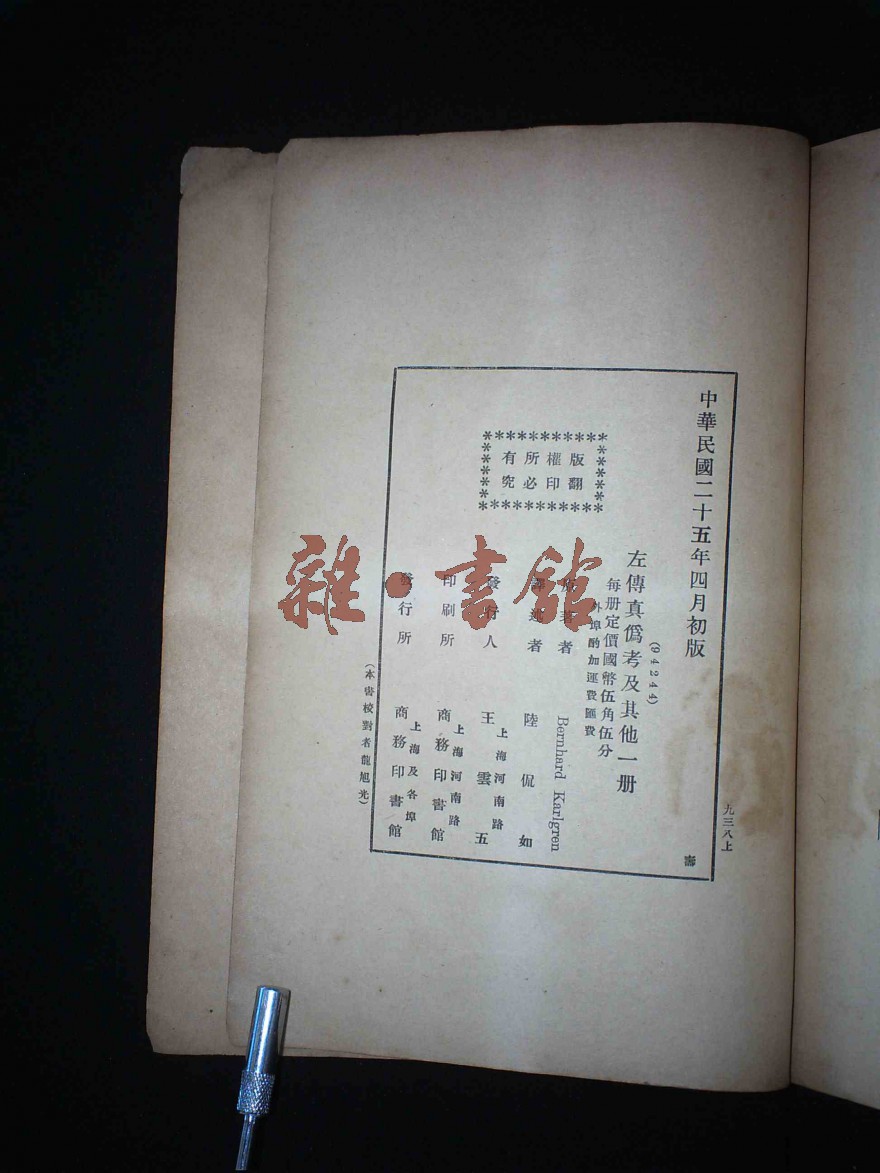 中華民國二十五年四月初版
九三八上
壽
左傳真僞考及其他一册
(94244)
每册定價國幣伍角伍分
外埠酌加運費匯費
版權所有
翻印必究
原著者 Bernhard Karlgren
譯述者 陸侃如
發行人 王雲五
上海河南路
印刷所 商務印書館
上海河南路
發行所 商務印書館
上海及各埠
(本書校對者龍旭光)
雜·書館